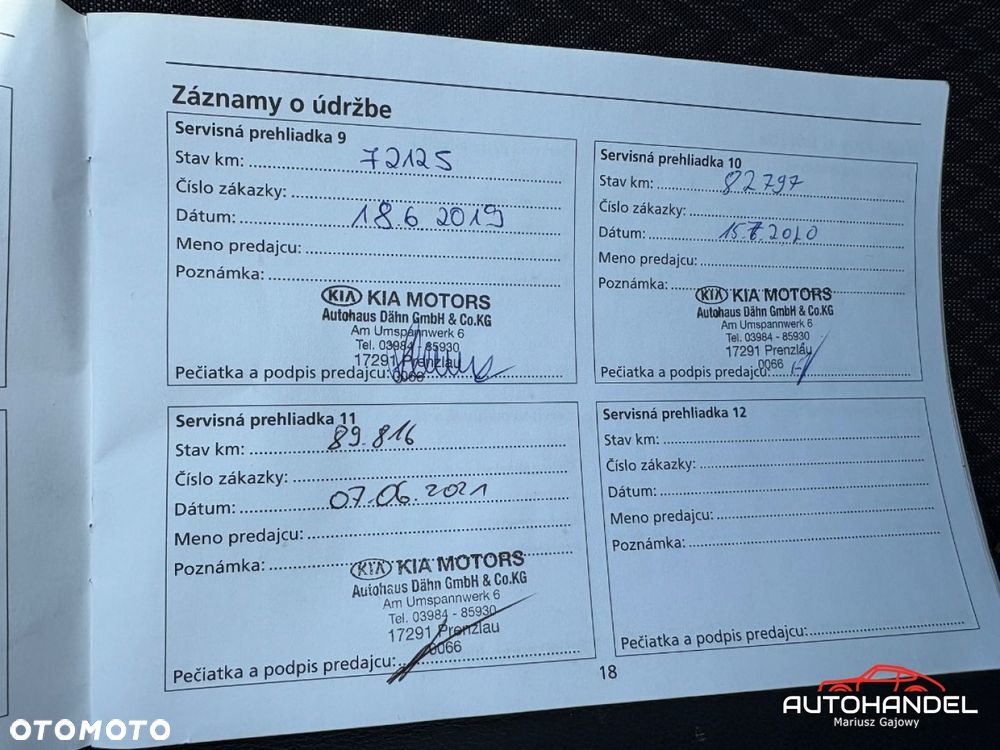 Záznamy o údržbe
Servisná prehliadka 9
Stav km: 72125
Číslo zákazky:
Dátum: 18.6 2019
Meno predajcu:
Poznámka:
KIA KIA MOTORS
Autohaus Dähn GmbH & Co.KG
Am Umspannwerk 6
Tel. 03984 - 85930
17291 Prenzlau
0066
Pečiatka a podpis predajcu:
Servisná prehliadka 10
Stav km: 82797
Číslo zákazky:
Dátum: 15.7.2020
Meno predajcu:
Poznámka:
KIA KIA MOTORS
Autohaus Dähn GmbH & Co.KG
Am Umspannwerk 6
Tel. 03984 - 85930
17291 Prenzlau
0066
Pečiatka a podpis predajcu:
Servisná prehliadka 11
Stav km: 89.816
Číslo zákazky:
Dátum: 07.06.2021
Meno predajcu:
Poznámka:
KIA KIA MOTORS
Autohaus Dähn GmbH & Co.KG
Am Umspannwerk 6
Tel. 03984 - 85930
17291 Prenzlau
0066
Pečiatka a podpis predajcu:
Servisná prehliadka 12
Stav km:
Číslo zákazky:
Dátum:
Meno predajcu:
Poznámka:
Pečiatka a podpis predajcu:
18
OTOMOTO
AUTOHANDEL
Mariusz Gajowy